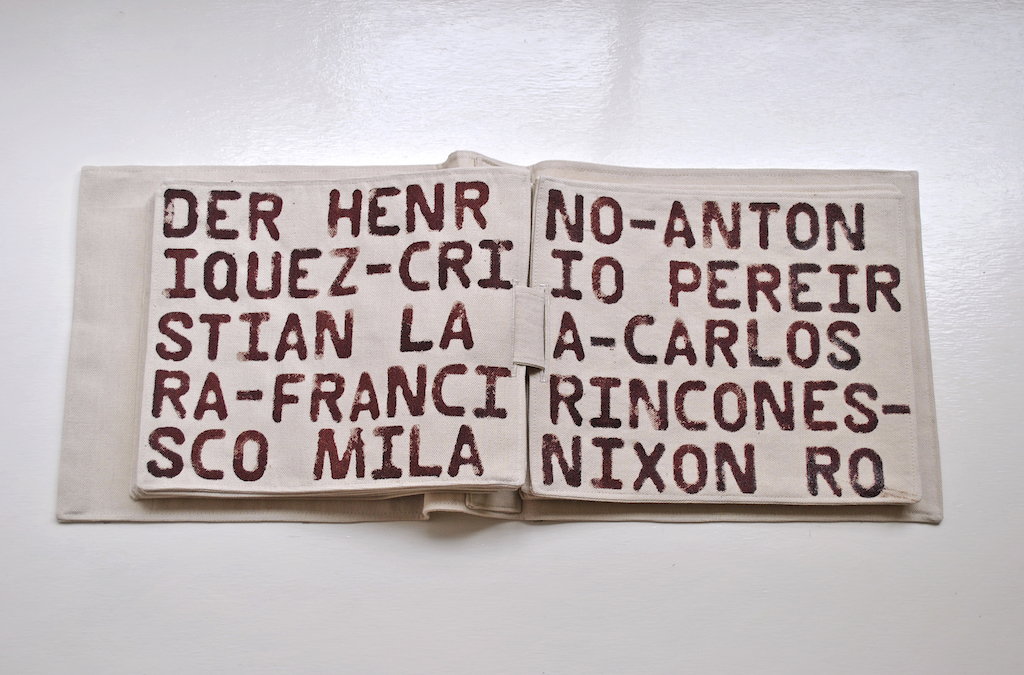 DER HENR
IQUEZ-CRI
STIAN LA
RA-FRANCI
SCO MILA
NO-ANTON
IO PEREIR
A-CARLOS
RINCONES-
NIXON RO